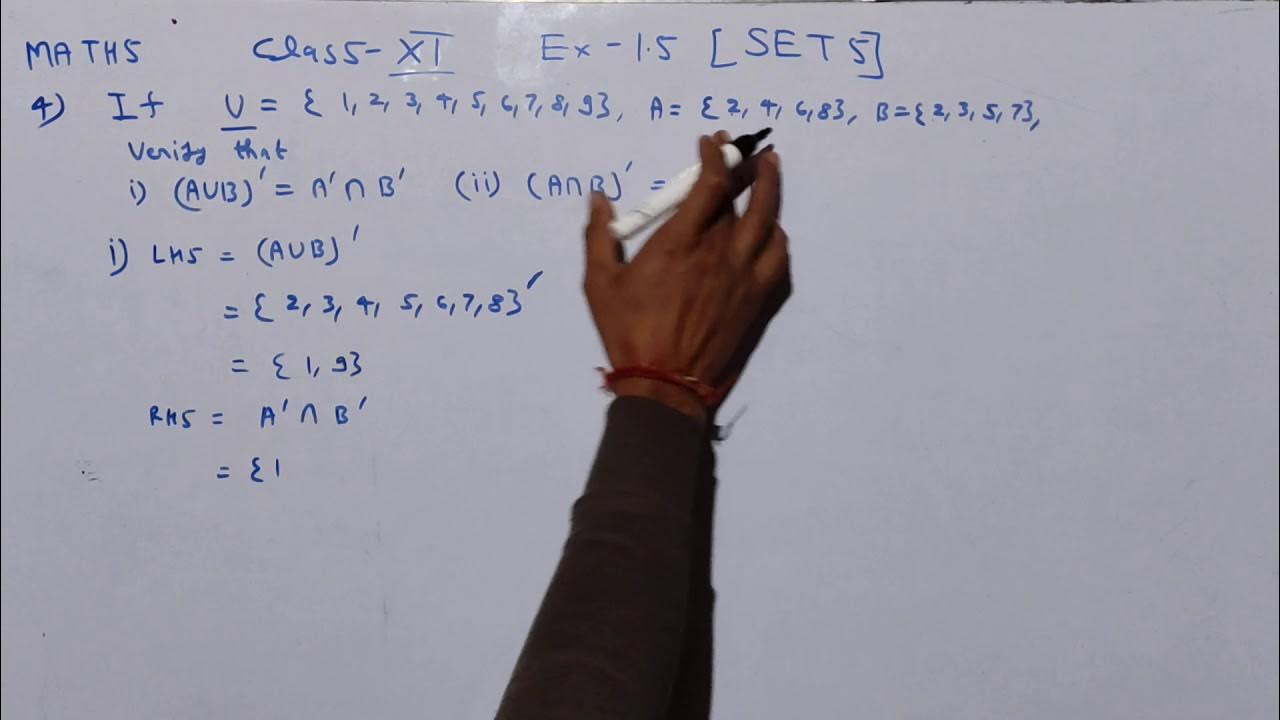 MATHS Class-XI Ex-1.5 [SETS]
4) If U = { 1, 2, 3, 4, 5, 6, 7, 8, 9}, A = {2, 4, 6, 8}, B = {2, 3, 5, 7},
Verify that
i) (A∪B)' = A' ∩ B' (ii) (A∩B)' =
i) LHS = (A∪B)'
= { 2, 3, 4, 5, 6, 7, 8}'
= { 1, 9}
RHS = A' ∩ B'
= {1